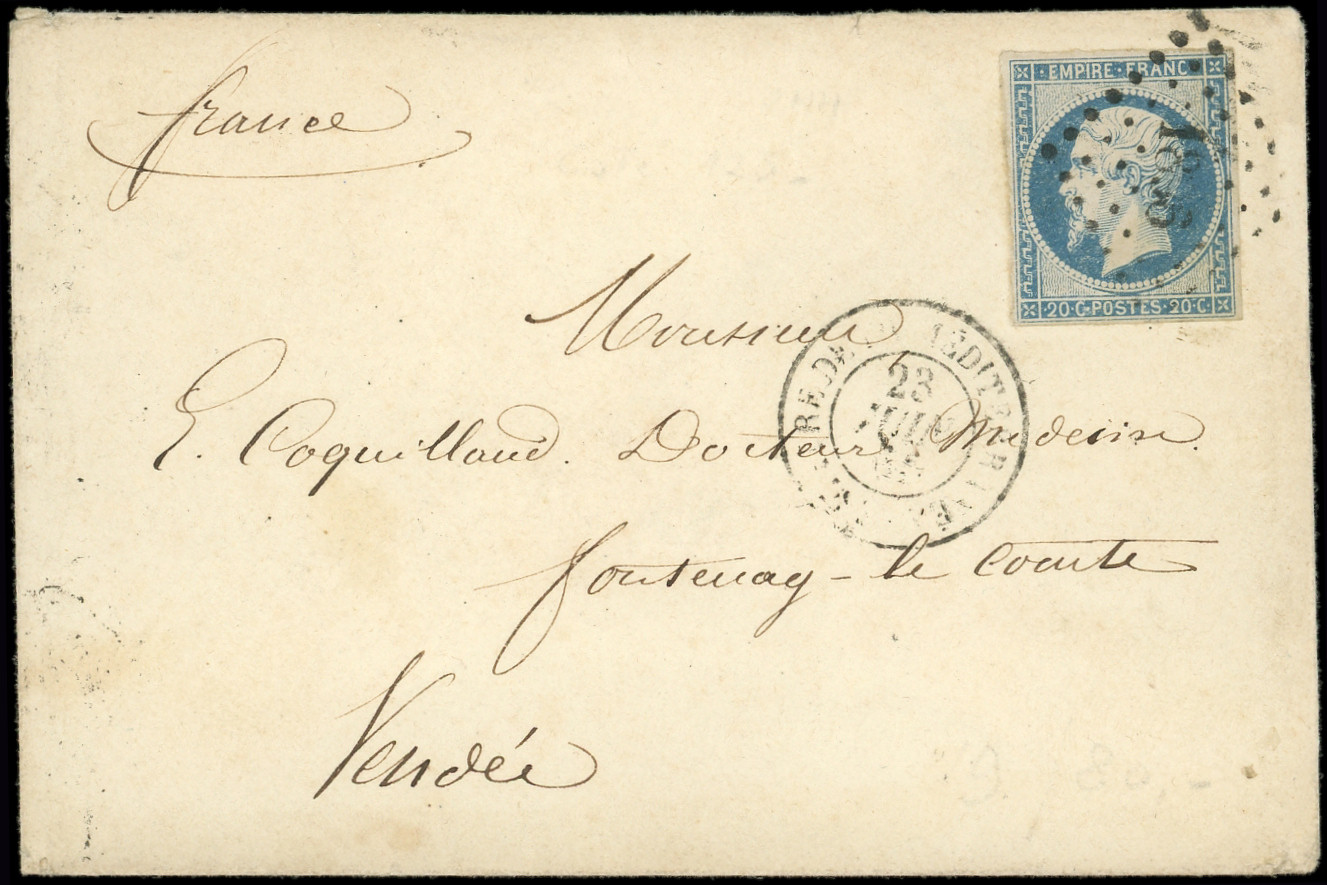 france
EMPIRE · FRANC
20 · C · POSTES · 20 · C
Monsieur
E. Coquilland. Docteur Medecin
fontenay - le comte
Vendée
23
JUIL